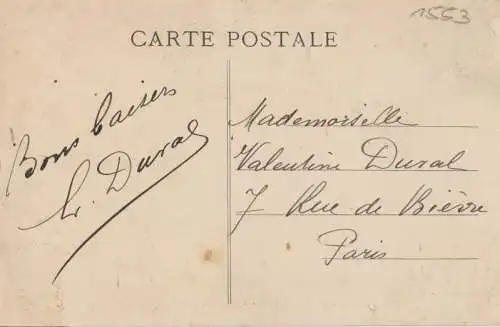 1553
CARTE POSTALE
Bons baisers
Duval
Mademoiselle
Valentine Duval
7 Rue de Bièvre
Paris